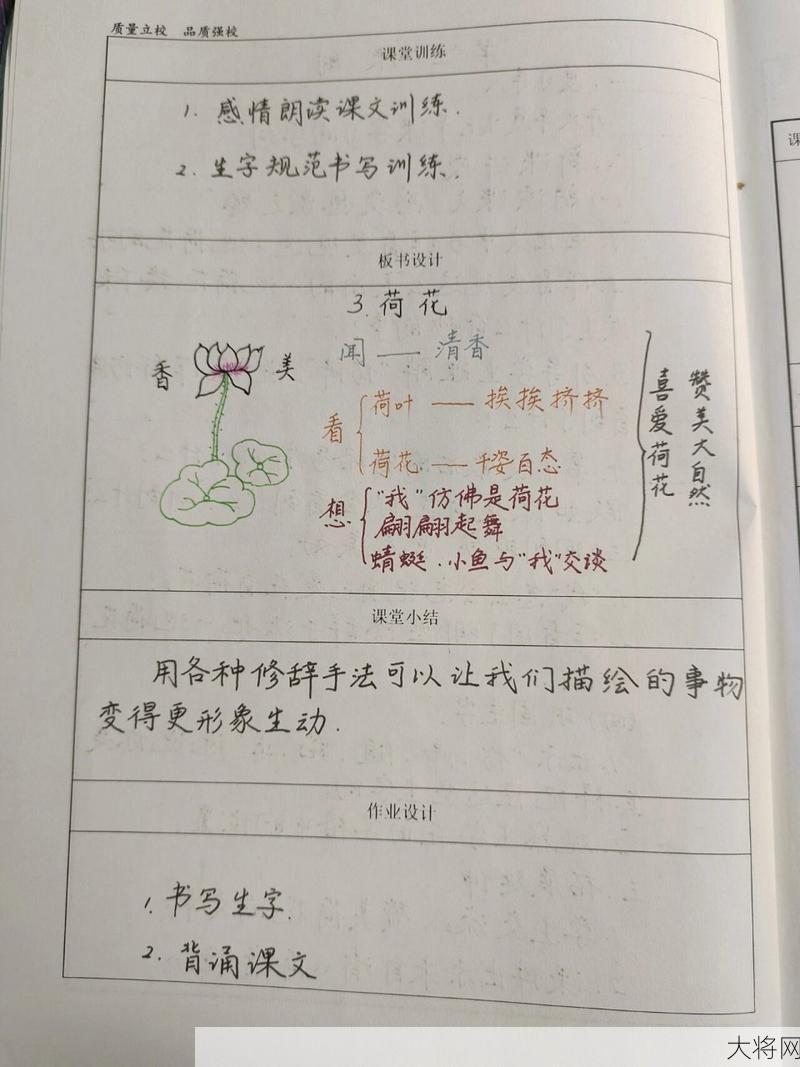 质量立校 品质强校
课堂训练
1. 感情朗读课文训练.
2. 生字规范书写训练.
板书设计
3. 荷花
香 美
闻 —— 清香
看
荷叶 —— 挨挨挤挤
荷花 —— 千姿百态
想
“我”仿佛是荷花
翩翩起舞
蜻蜓.小鱼与“我”交谈
喜爱荷花
赞美大自然
课堂小结
用各种修辞手法可以让我们描绘的事物
变得更形象生动.
作业设计
1. 书写生字.
2. 背诵课文
课
大将网